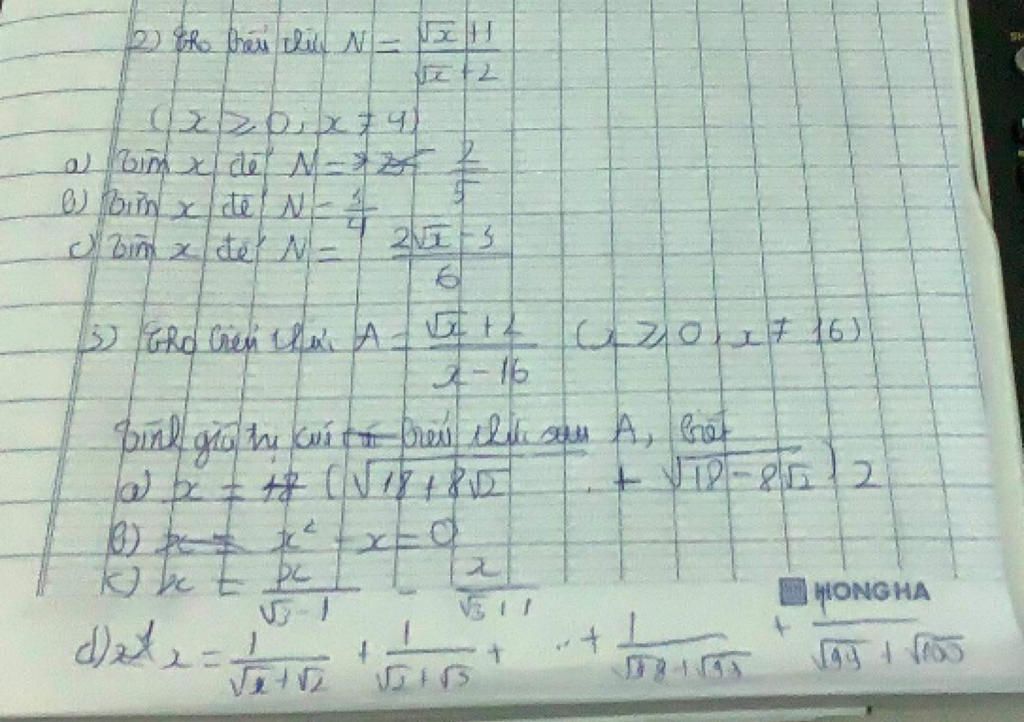 2) Cho biểu thức N = (√x + 1)/(√x + 2)
(x ≥ 0, x ≠ 4)
a) Tìm x để N = 2/5
b) Tìm x để N = 3/4
c) Tìm x để N = (2√x - 3)/6
3) Cho biểu thức A = (√x + 2)/(x - 16) (x ≥ 0, x ≠ 16)
Tính giá trị của biểu thức A, biết
a) x = (√(18 + 8√2) + √(18 - 8√2)) 2
b) x² - x = 0
c) x = x/(√3 - 1) - x/(√3 + 1)
HONGHA
d) x = 1/(√1 + √2) + 1/(√2 + √3) + ... + 1/(√98 + √99) + 1/(√99 + √100)